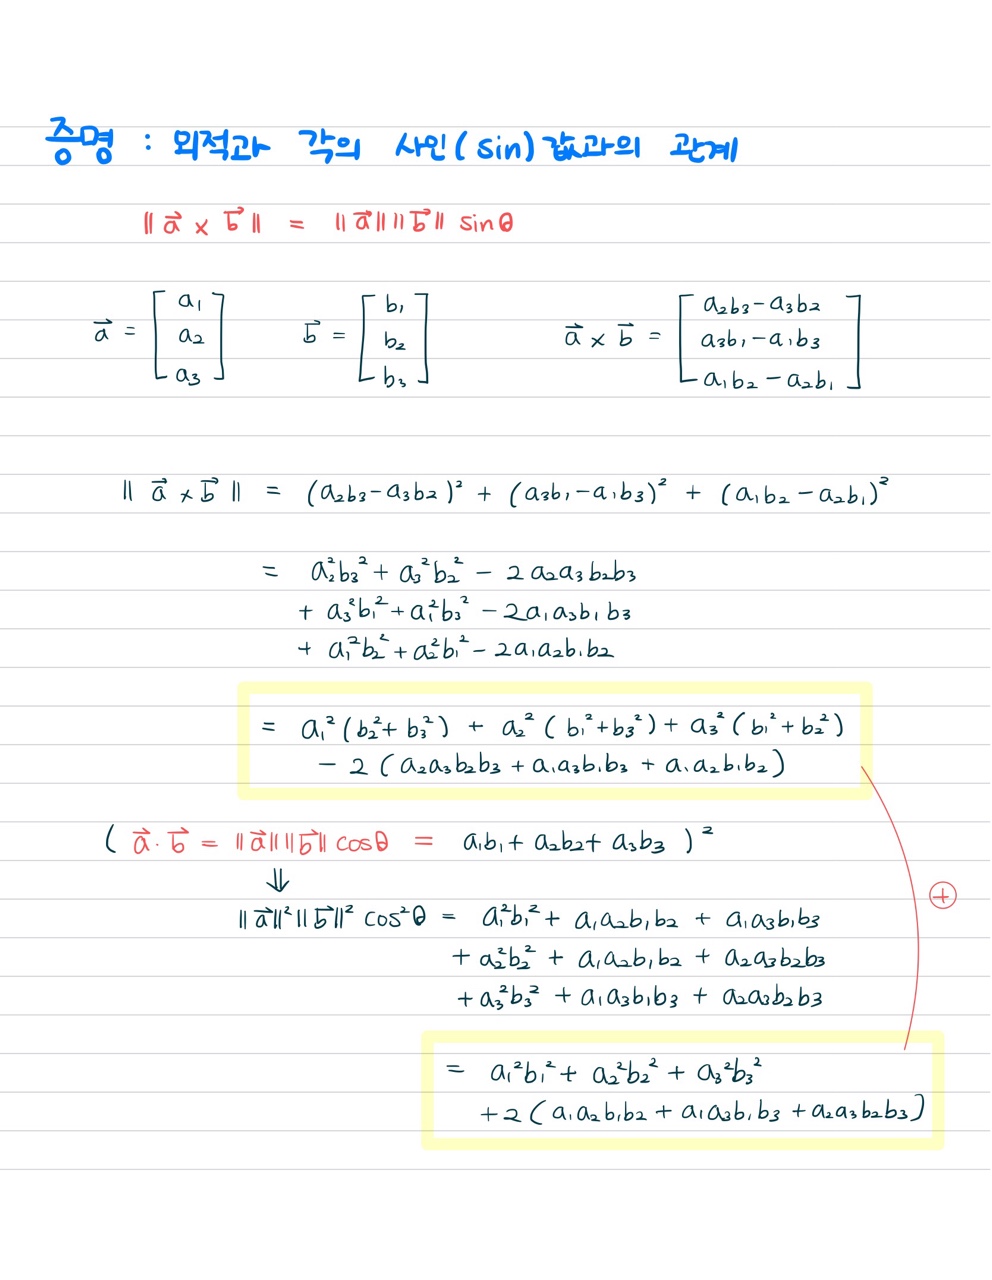 증명 : 외적과 각의 사인(sin)값과의 관계
‖a⃗ × b⃗‖ = ‖a⃗‖‖b⃗‖ sinθ
a⃗ = [a₁ a₂ a₃] b⃗ = [b₁ b₂ b₃] a⃗ × b⃗ = [a₂b₃-a₃b₂ a₃b₁-a₁b₃ a₁b₂-a₂b₁]
‖a⃗ × b⃗‖ = (a₂b₃-a₃b₂)² + (a₃b₁-a₁b₃)² + (a₁b₂-a₂b₁)²
= a₂²b₃² + a₃²b₂² - 2a₂a₃b₂b₃
+ a₃²b₁² + a₁²b₃² - 2a₁a₃b₁b₃
+ a₁²b₂² + a₂²b₁² - 2a₁a₂b₁b₂
= a₁²(b₂²+b₃²) + a₂²(b₁²+b₃²) + a₃²(b₁²+b₂²)
- 2(a₂a₃b₂b₃ + a₁a₃b₁b₃ + a₁a₂b₁b₂)
(a⃗·b⃗ = ‖a⃗‖‖b⃗‖cosθ = a₁b₁ + a₂b₂ + a₃b₃)²
⇓
‖a⃗‖²‖b⃗‖² cos²θ = a₁²b₁² + a₁a₂b₁b₂ + a₁a₃b₁b₃
+ a₂²b₂² + a₁a₂b₁b₂ + a₂a₃b₂b₃
+ a₃²b₃² + a₁a₃b₁b₃ + a₂a₃b₂b₃
⊕
= a₁²b₁² + a₂²b₂² + a₃²b₃²
+2(a₁a₂b₁b₂ + a₁a₃b₁b₃ + a₂a₃b₂b₃)